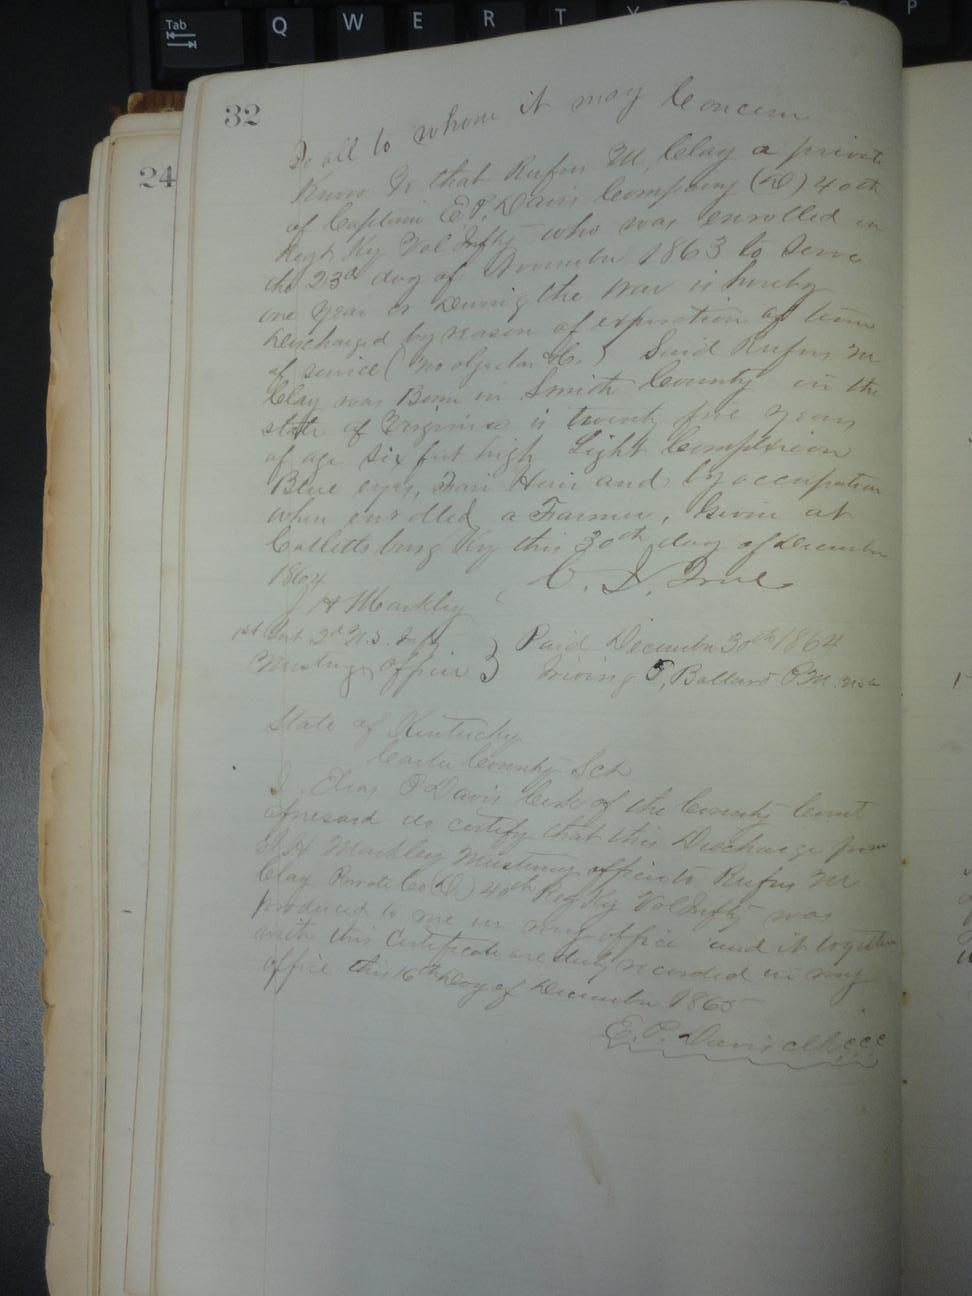 Tab Q W E R T Y P
32
24
To all to whom it may Concern
Know Ye that Rufus M, Clay a private
of Captain E.P. Davis Company (D) 40th
Regt Ky Vol Infty who was enrolled on
the 23rd day of November 1863 to Serve
one year or During the War is hereby
Discharged by reason of expiration of time
of service (No objection &c.) Said Rufus M
Clay was Born in Smith County in the
state of Virginia is twenty five years
of age six feet high Light Complexion
Blue eyes, Fair Hair and by occupation
when enrolled a Farmer, Given at
Catlettsburg Ky this 30th day of December
1864
C. J. True
J H Markley
1st Lieut 2nd U.S. Infty
Mustring officer
Paid December 30th 1864
Irving P, Ballard P.M. USA
State of Kentucky
Carter County Sct
I, Elias P Davis Clerk of the County Court
aforesaid do certify that this Discharge from
J. H Markley Mustering officer to Rufus M
Clay Private Co (D) 40th Reg Ky Vol Infty was
produced to me in my office and it together
with this Certificate are duly recorded in my
office this 16th Day of December 1865
E. P. Davis clk c c c